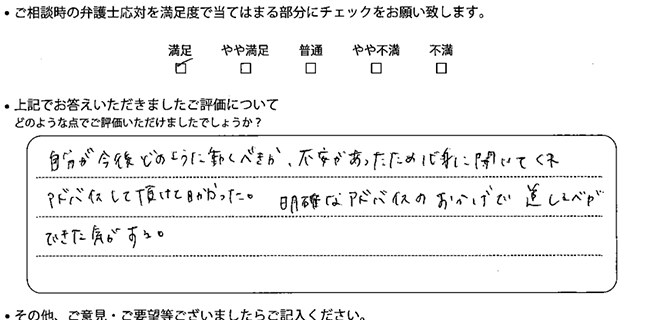 • ご相談時の弁護士応対を満足度で当てはまる部分にチェックをお願い致します。
満足 やや満足 普通 やや不満 不満
• 上記でお答えいただきましたご評価について
どのような点でご評価いただけましたでしょうか？
自分が今後どのように動くべきか、不安があったため親身に聞いてくれ
アドバイスして頂けて助かった。 明確なアドバイスのおかげで 道しるべが
できた気がする。
• その他、ご意見・ご要望等ございましたらご記入ください。